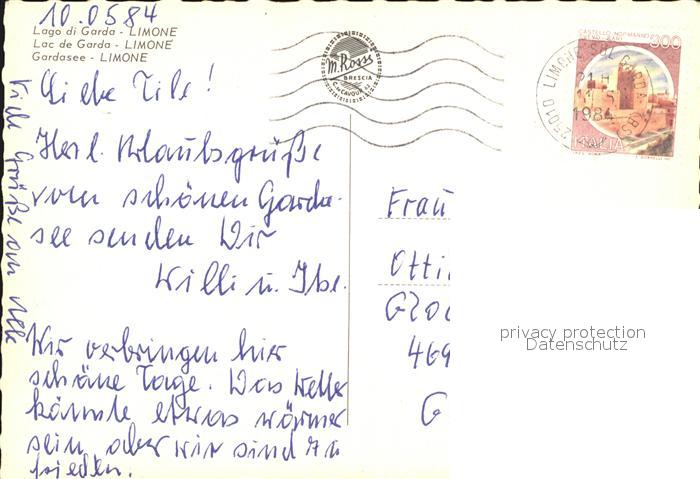 10.0584
Lago di Garda - LIMONE
Lac de Garda - LIMONE
Gardasee - LIMONE
Liebe Tile!
Herzl. Urlaubsgrüße
vom schönen Garda-
see senden Wir
Willi u. Ibe.
Wir verbringen hier
schöne Tage. Das Wetter
könnte etwas wärmer
sein, aber wir sind zu
frieden.
Viele Grüße an alle
M. Rossi
BRESCIA
C. CAVOUR
CASTELLO NORMANNO
SVEVO - BARI
300
ITALIA
25010 LIMONE SUL GARDA (BS)
1984
Frau
Otti
469
G
privacy protection
Datenschutz